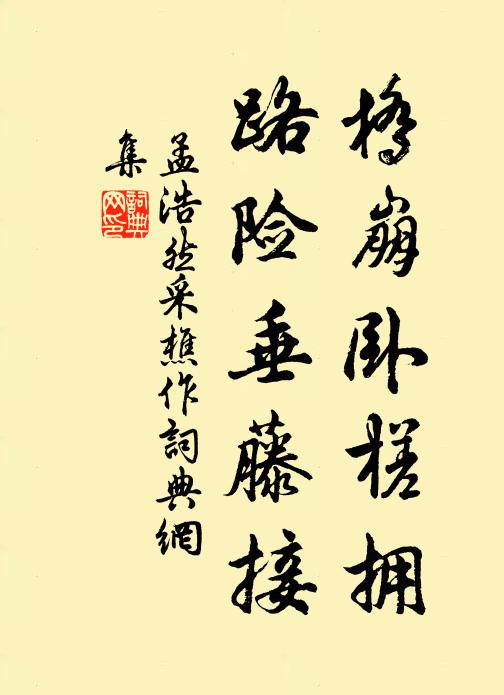 桥崩卧槎拥
路险垂藤接
孟浩然采樵作詞典網
集
詞典网印